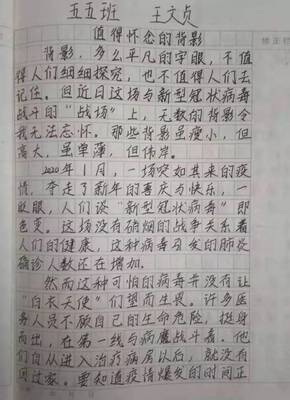 五五班 王文贞
值得怀念的背影
背影，多么平凡的字眼，不值
得人们细细探究，也不值得人们去
记住。但近日这场与新型冠状病毒
战斗的“战场”上，无数的背影令
我无法忘怀。那些背影虽瘦小，但
高大，虽单薄，但伟岸。
2020年1月，一场突如其来的疫
情，夺走了新年的喜庆与快乐，一
眨眼，人们谈“新型冠状病毒”即
色变。这场没有硝烟的战争关系着
人们的健康，这种病毒引发的肺炎
确诊人数还在增加。
然而这种可怕的病毒并没有让
“白衣天使”们望而生畏。许多医
务人员不顾自己的生命危险，挺身
而出，在第一线与病魔战斗着。他
们自从进入治疗病房以后，就没有
回过家。要知道疫情爆发的时间正